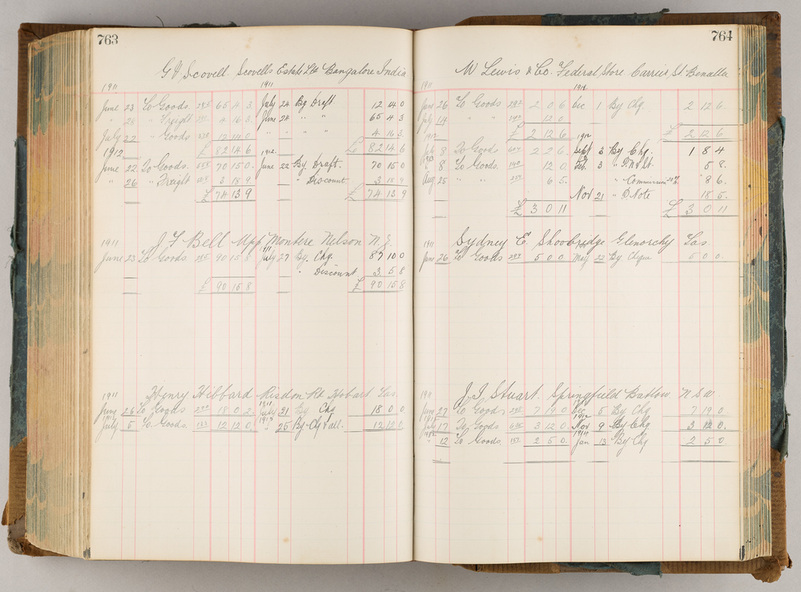 763
G J Scovell Scovells Estate Ltd Bangalore India
1911 1911
June 23 To Goods 65 4 3 July 24 By Draft 12 14 0
" " Freight 4 16 3 June 24 " " 65 4 3
July 22 " Goods 12 14 0 " " " 4 16 3
1912 £ 82 14 6 1912 £ 82 14 6
June 22 To Goods 70 15 0 June 22 By Draft 70 15 0
" 26 " Freight 3 18 9 " Discount 3 18 9
£ 74 13 9 £ 74 13 9
1911 J F Bell Upp Montere Nelson N Z
June 23 To Goods 90 15 8 July 27 By Chq. 87 10 0
" Discount 3 5 8
£ 90 15 8 £ 90 15 8
1911 Henry Hibbard Risdon Rd Hobart Tas
June 26 To Goods 18 0 2 1911 July 31 By Chq 18 0 0
July 5 To Goods 12 12 0 " 25 By Chq & all. 12 12 0
764
M Lewis & Co. Federal Store Carrier St Benalla
1911
June 26 To Goods 2 0 6 Dec 1 By Chq 2 12 6
July 19 " " 12 0
£ 2 12 6 £ 2 12 6
8 To Goods 2 2 6 Sept 3 By Chq. 1 8 4
8 To Goods 12 0 3 " 5 8
Aug 25 " " 6 5 " Commission 8 6
Nov 21 " D. Note 18 5
£ 3 0 11 £ 3 0 11
1911 Sydney E. Shoobridge Glenorchy Tas
June 26 To Goods 5 0 0 May 22 By Chque 5 0 0
1911 J J Stuart Springfield Batlow N S W
June 27 To Goods 7 19 0 Dec 5 By Chq 7 19 0
17 To Goods 3 12 0 Nov 9 By Chq 3 12 0
" 12 To Goods 2 5 0 Jan 13 By Chq 2 5 0